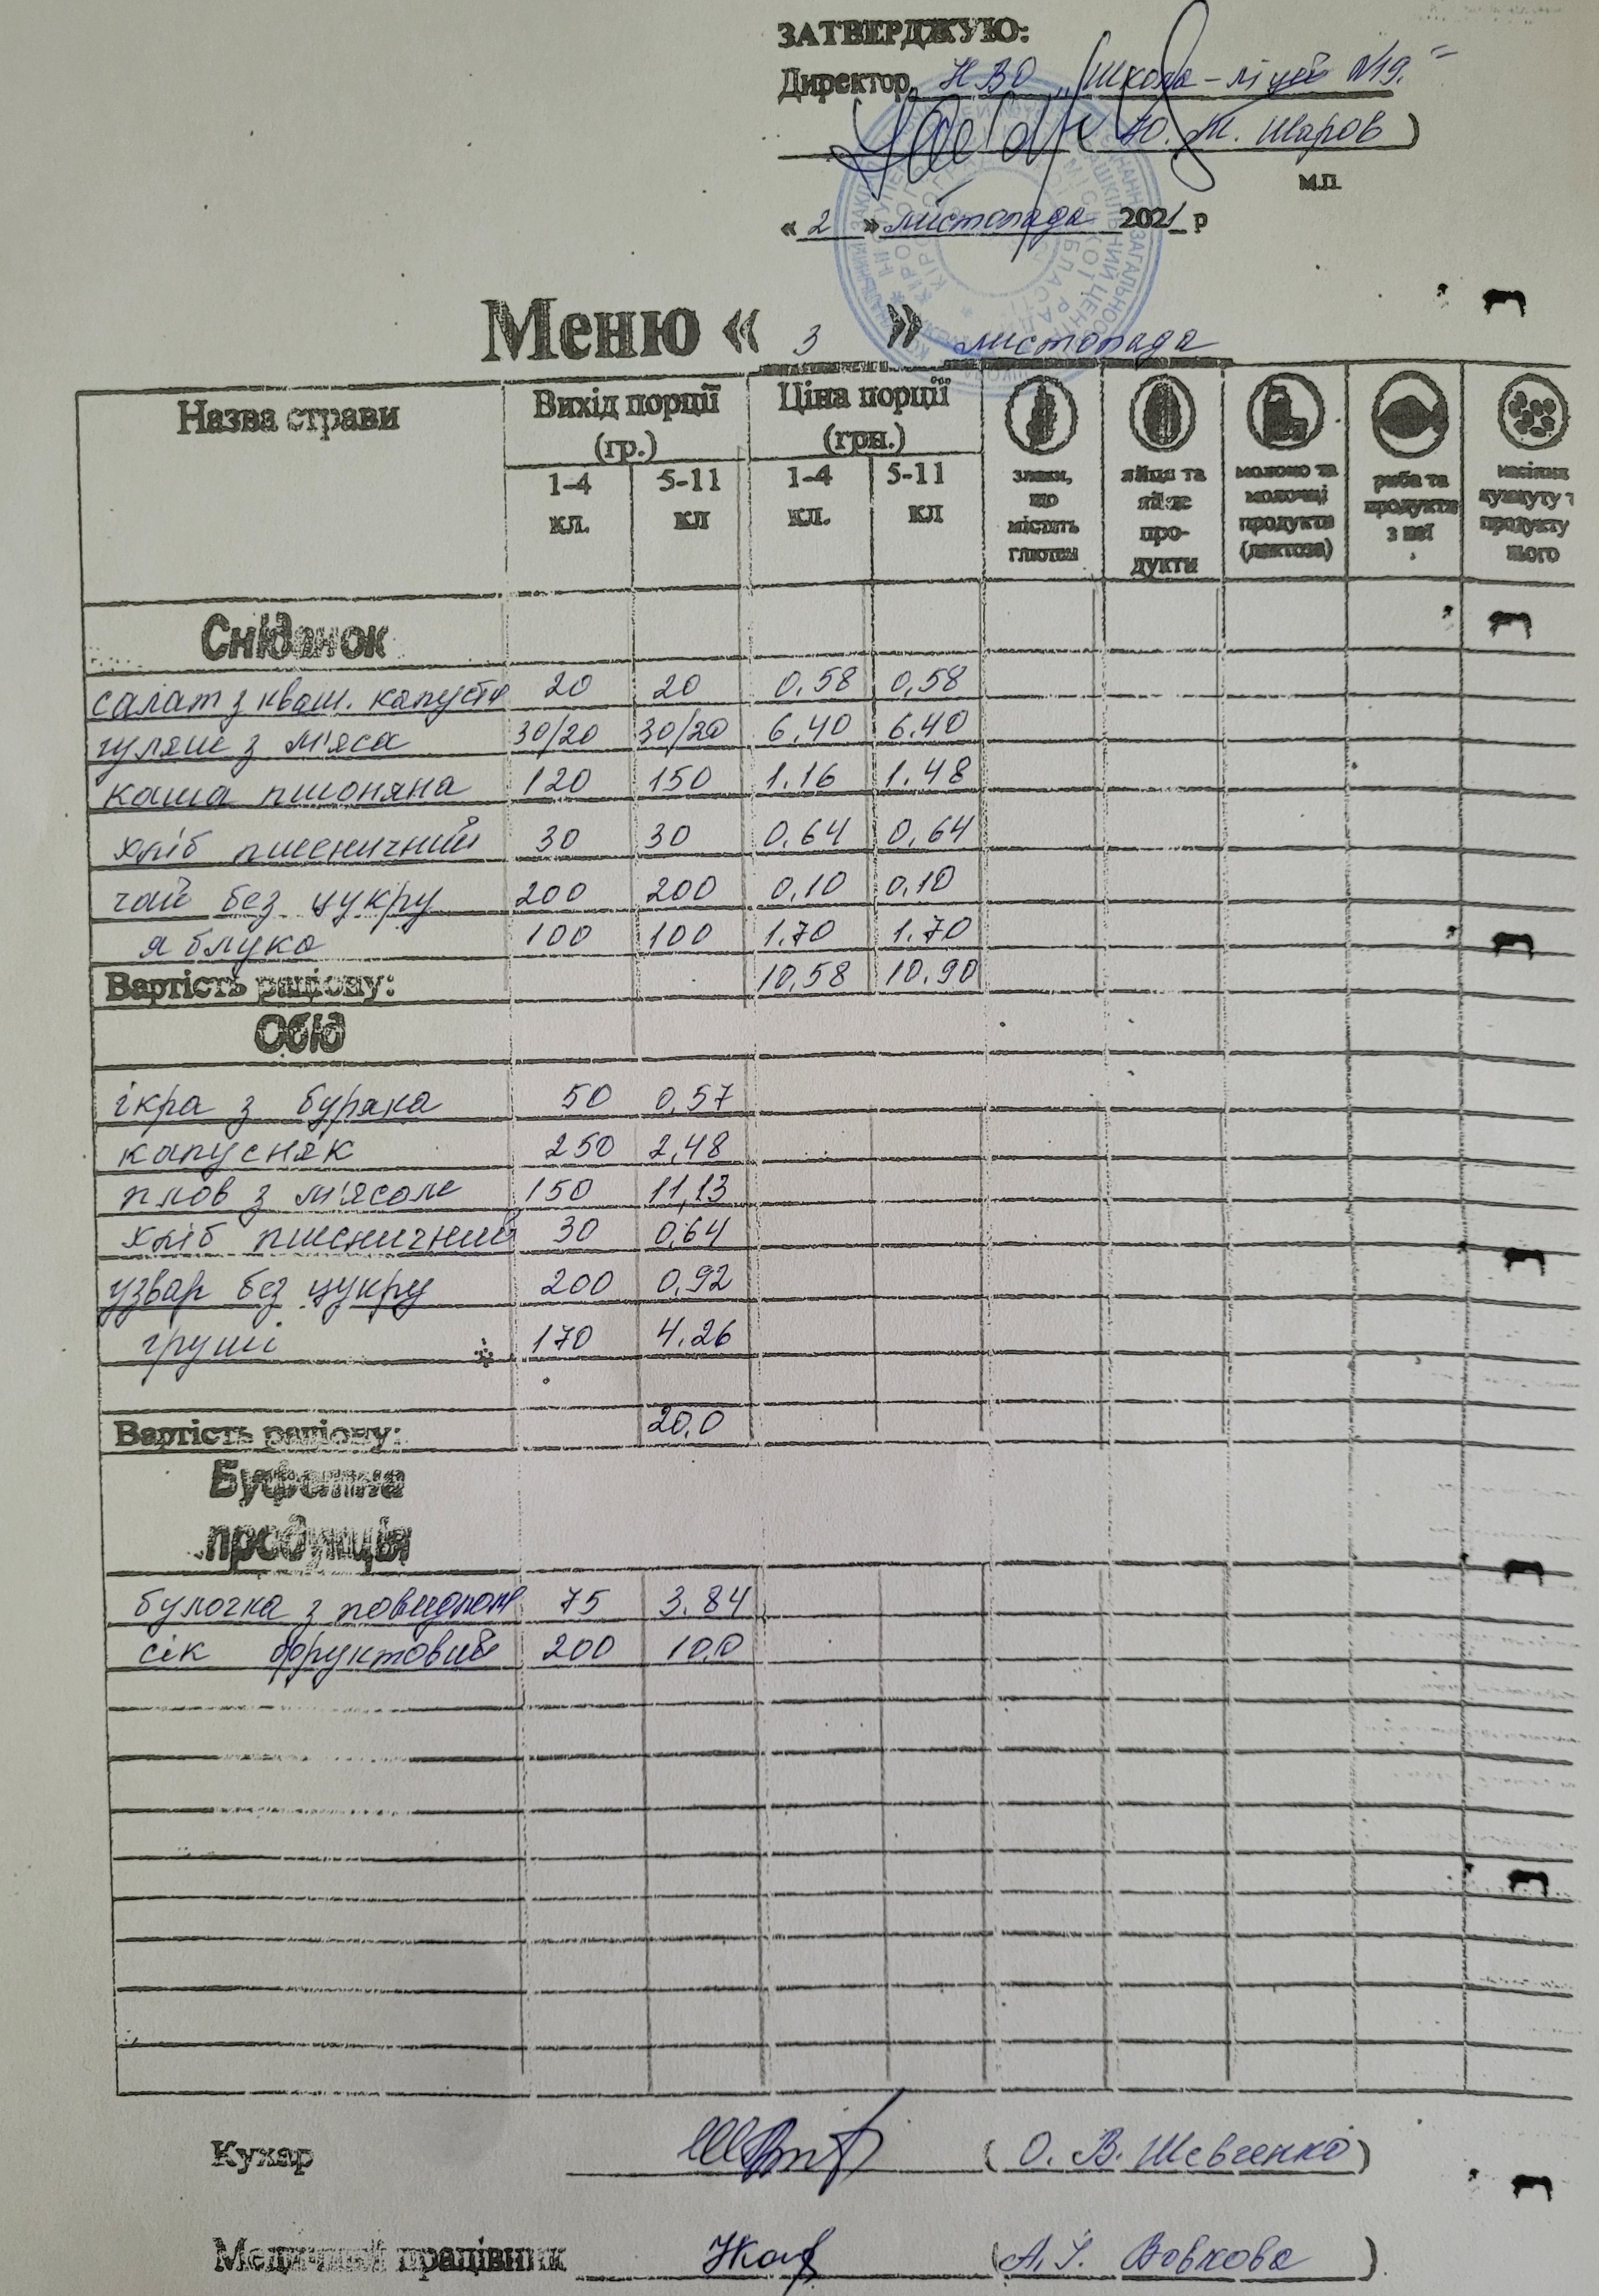 ЗАТВЕРДЖУЮ:
Директор НВО "Школа-ліцей №19"
(Ю. М. Шаров)
М.П.
« 2 » листопада 2021 р
Меню « 3 » листопада
Назва страви Вихід порції (гр.) Ціна порції (грн.)
1-4 кл. 5-11 кл 1-4 кл. 5-11 кл
злаки, що містять глютен
яйця та яйце продукти
молоко та молочні продукти (лактоза)
риба та продукти з неї
Сніданок
салат з кваш. капусти 20 20 0,58 0,58
гуляш з м'яса 30/20 30/20 6,40 6,40
каша пшоняна 120 150 1.16 1.48
хліб пшеничний 30 30 0,64 0,64
чай без цукру 200 200 0,10 0,10
яблуко 100 100 1.70 1.70
Вартість раціону: 10,58 10.90
Обід
ікра з буряка 50 0,57
капусняк 250 2,48
плов з м'ясом 150 11,13
хліб пшеничний 30 0,64
узвар без цукру 200 0,92
груші 170 4.26
Вартість раціону: 20,0
Буфетна
продукція
булочка з повидлом 75 3.84
сік фруктовий 200 10,0
Кухар (О. В. Шевченко)
Медичний працівник (А. І. Вовкова)